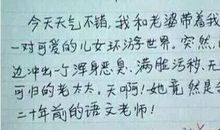 今天天气不错,我和老婆带着我
一对可爱的儿女环游世界。突然,
边冲出一个浑身恶臭、满脏活秽、无
可归的老太太。天啊!她竟然是
二十年前的语文老师!